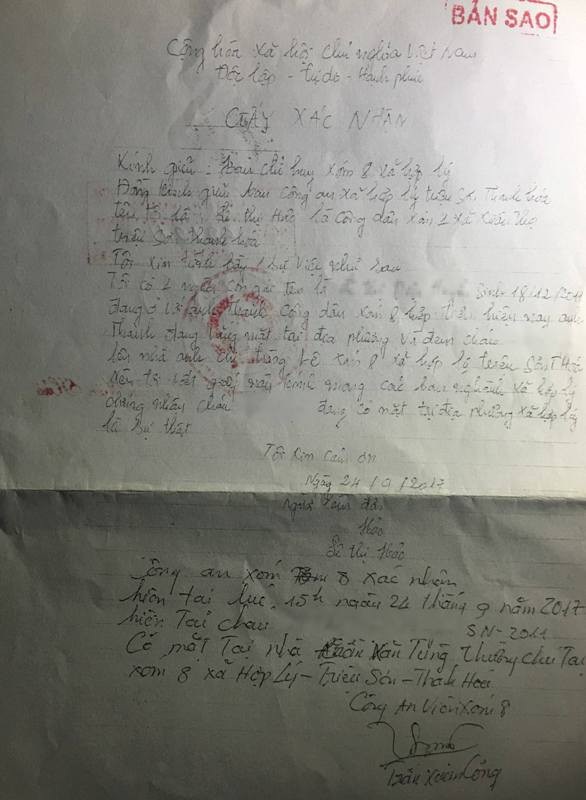 BẢN SAO
Cộng hòa xã hội chủ nghĩa Việt Nam
Độc lập - tự do - Hạnh phúc
GIẤY XÁC NHẬN
Kính gửi: Ban chỉ huy xóm 8 xã hợp lý
Đồng kính gửi ban công an xã hợp lý triệu sơn Thanh hóa
tên tôi là: Lê thị là công dân xóm 1 xã Xuân Thọ
triệu Sơn thanh hóa
Tôi xin trình bày 1 sự việc như sau
Tôi có 1 người con gái tên là Sinh 18/12/2011
đang ở với anh Thanh công dân xóm 8 hợp hiện nay anh
Thanh đang vắng mặt tại địa phương và đem cháu
nhà anh xóm 8 xã hợp lý triệu Sơn
Nên tôi viết giấy này kính mong các ban nghành xã hợp lý
chứng nhận cháu đang có mặt tại địa phương xã hợp lý
là sự thật
Tôi xin cảm ơn
Ngày 24/9/2017
Người làm đơn
Lê thị
Công an xóm 8 xác nhận
hiện tại lúc, 15h ngày 24 tháng 9 năm 2017
hiện Tại cháu SN-2011
Có mặt Tại nhà Văn Tùng Thường chú Tại
xóm 8 xã Hợp Lý - Triệu Sơn - Thanh Hoá
Công An Viên Xóm 8
Trần Xuân